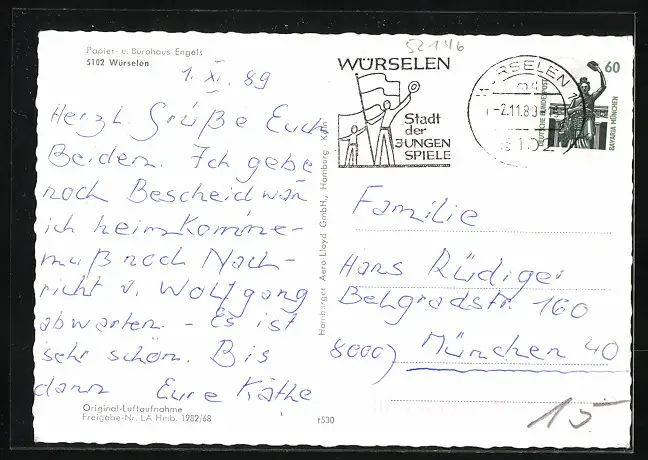 52146
Papier- u. Bürohaus Engels
5102 Würselen
1. XI. 89
Herzl. Grüße Euch
Beiden. Ich gebe
noch Bescheid wan
ich heimkomme -
muß noch Nach-
richt v. Wolfgang
abwarten. - Es ist
sehr schön. Bis
dann Eure Käthe
Original-Luftaufnahme
Freigabe-Nr. LA Hmb. 1982/68
t530
Hamburger Aero-Lloyd GmbH., Hamburg - Köln
WÜRSELEN
Stadt
der
JUNGEN
SPIELE
WÜRSELEN 1
-2.11.89
5102
60
DEUTSCHE BUNDESPOST
BAVARIA MÜNCHEN
Familie
Hans Rüdiger
Belgradstr. 160
8000) München 40
15